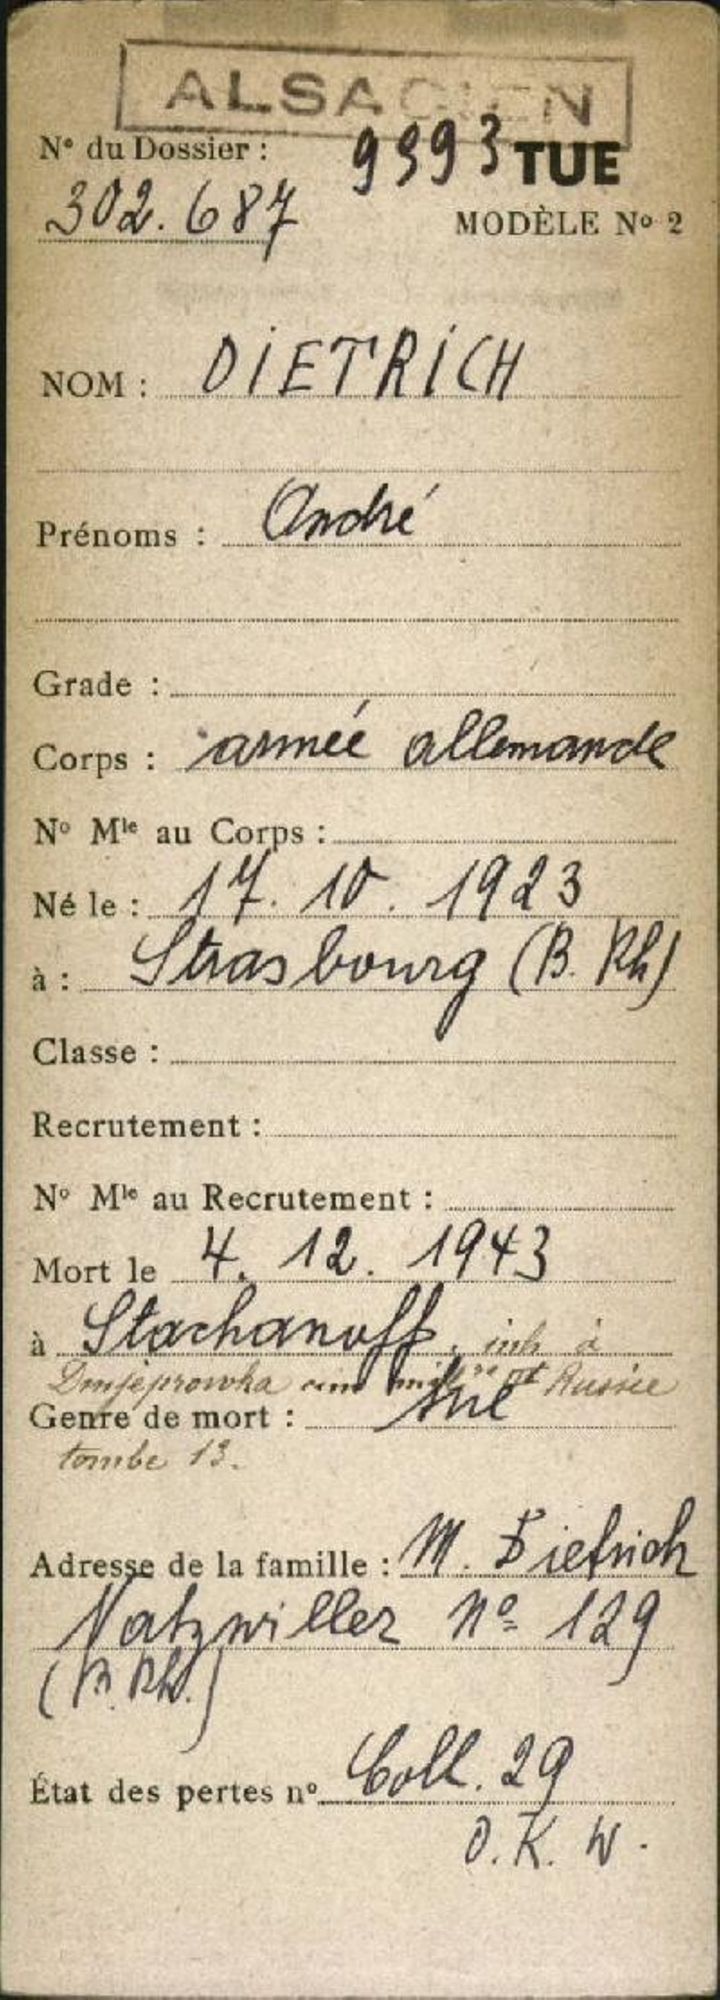 ALSACIEN
N° du Dossier : 9393 TUE
302.687 MODÈLE N° 2
NOM : DIETRICH
Prénoms : André
Grade :
Corps : armée allemande
N° Mle au Corps :
Né le : 17. 10. 1923
à : Strasbourg (B. Rh)
Classe :
Recrutement :
N° Mle au Recrutement :
Mort le 4. 12. 1943
à Stachanoff, inh à
Dnjeprowka cim milre et Russie
Genre de mort : tué
tombe 13.
Adresse de la famille : M. Dietrich
Natzwiller n° 129
(B. Rh.)
État des pertes n° Coll. 29
O. K. W.